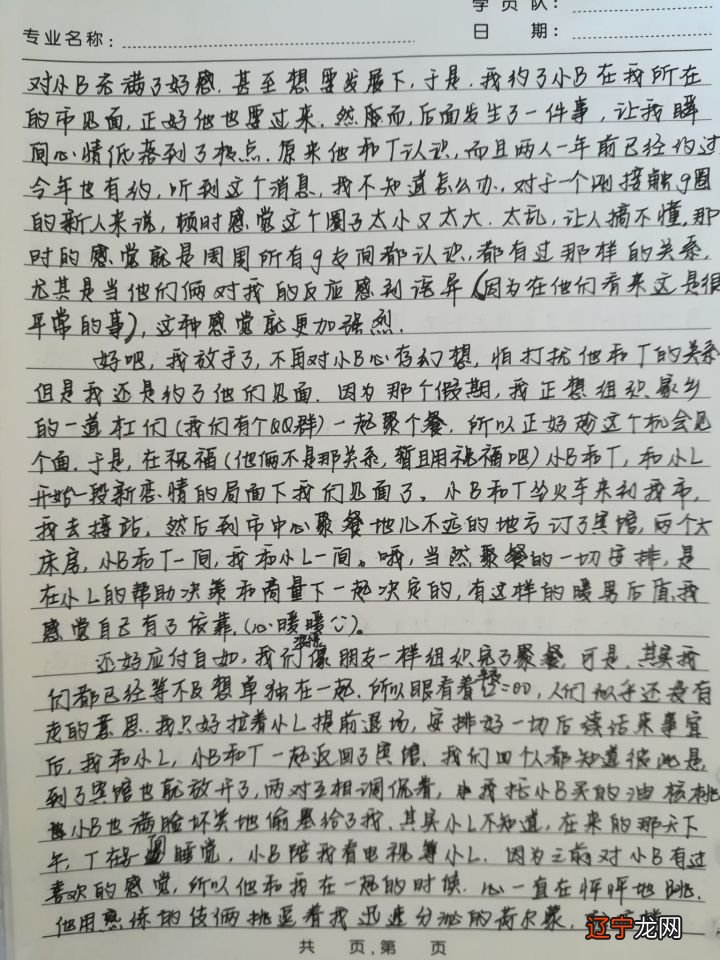 学员队:
专业名称:
日 期:
对小B充满了好感,甚至想要发展下,于是,我约了小B在我所在
的市见面,正好他也要过来。然而,后面发生了一件事,让我瞬
间心情低落到了极点,原来他和T认识,而且两人一年前已经约过
今年也有约,听到这个消息,我不知道怎么办,对于一个刚接触g圈
的新人来说,顿时感觉这个圈子太小又太大,太乱,让人搞不懂,那
时的感觉就是周围所有g友间都认识,都有过那样的关系,
尤其是当他们俩对我的反应感到诧异(因为在他们看来这是很
平常的事),这种感觉就更加强烈.
好吧,我放手了,不再对小B心存幻想,怕打扰他和T的关系
但是我还是约了他们见面.因为那个假期,我正想组织家乡
的一道杠们(我们有个QQ群)一起聚个餐,所以正好趁这个机会见
个面.于是,在祝福(他俩不是那关系,暂且用祝福吧)小B和T,和小L
开始一段新恋情的局面下我们见面了。小B和T坐火车来到我市,
我去接站,然后到市中心聚餐地儿不远的地方订了宾馆,两个大
床房,小B和T一间,我和小L一间。哦,当然聚餐的一切安排,是
在小L的帮助决策和商量下一起决定的,有这样的暖男后盾,我
感觉自己有了依靠,(心暖暖)。
还好应付自如,我们像朋友一样组织完了聚餐,可是,其实我
们都已经等不及想单独在一起.所以眼看着12=00,人们似乎还没有
走的意思.我只好拉着小L提前退场,安排好一切后续话来事宜
后,我和小L,小B和T一起返回了宾馆.我们四个人都知道彼此是,
到了宾馆也就放开了,两对互相调侃着,我托小B买的油核桃
小B也满脸坏笑地偷塞给了我.其实小L不知道,在来的那天下
午,T在睡觉,小B陪我看电视等小L.因为之前对小B有过
喜欢的感觉,所以他和我在一起的时候,心一直在怦怦地跳.
他用熟练的伎俩挑逗着我迅速分泌的荷尔蒙,
共 页,第 页
辽宁龙网